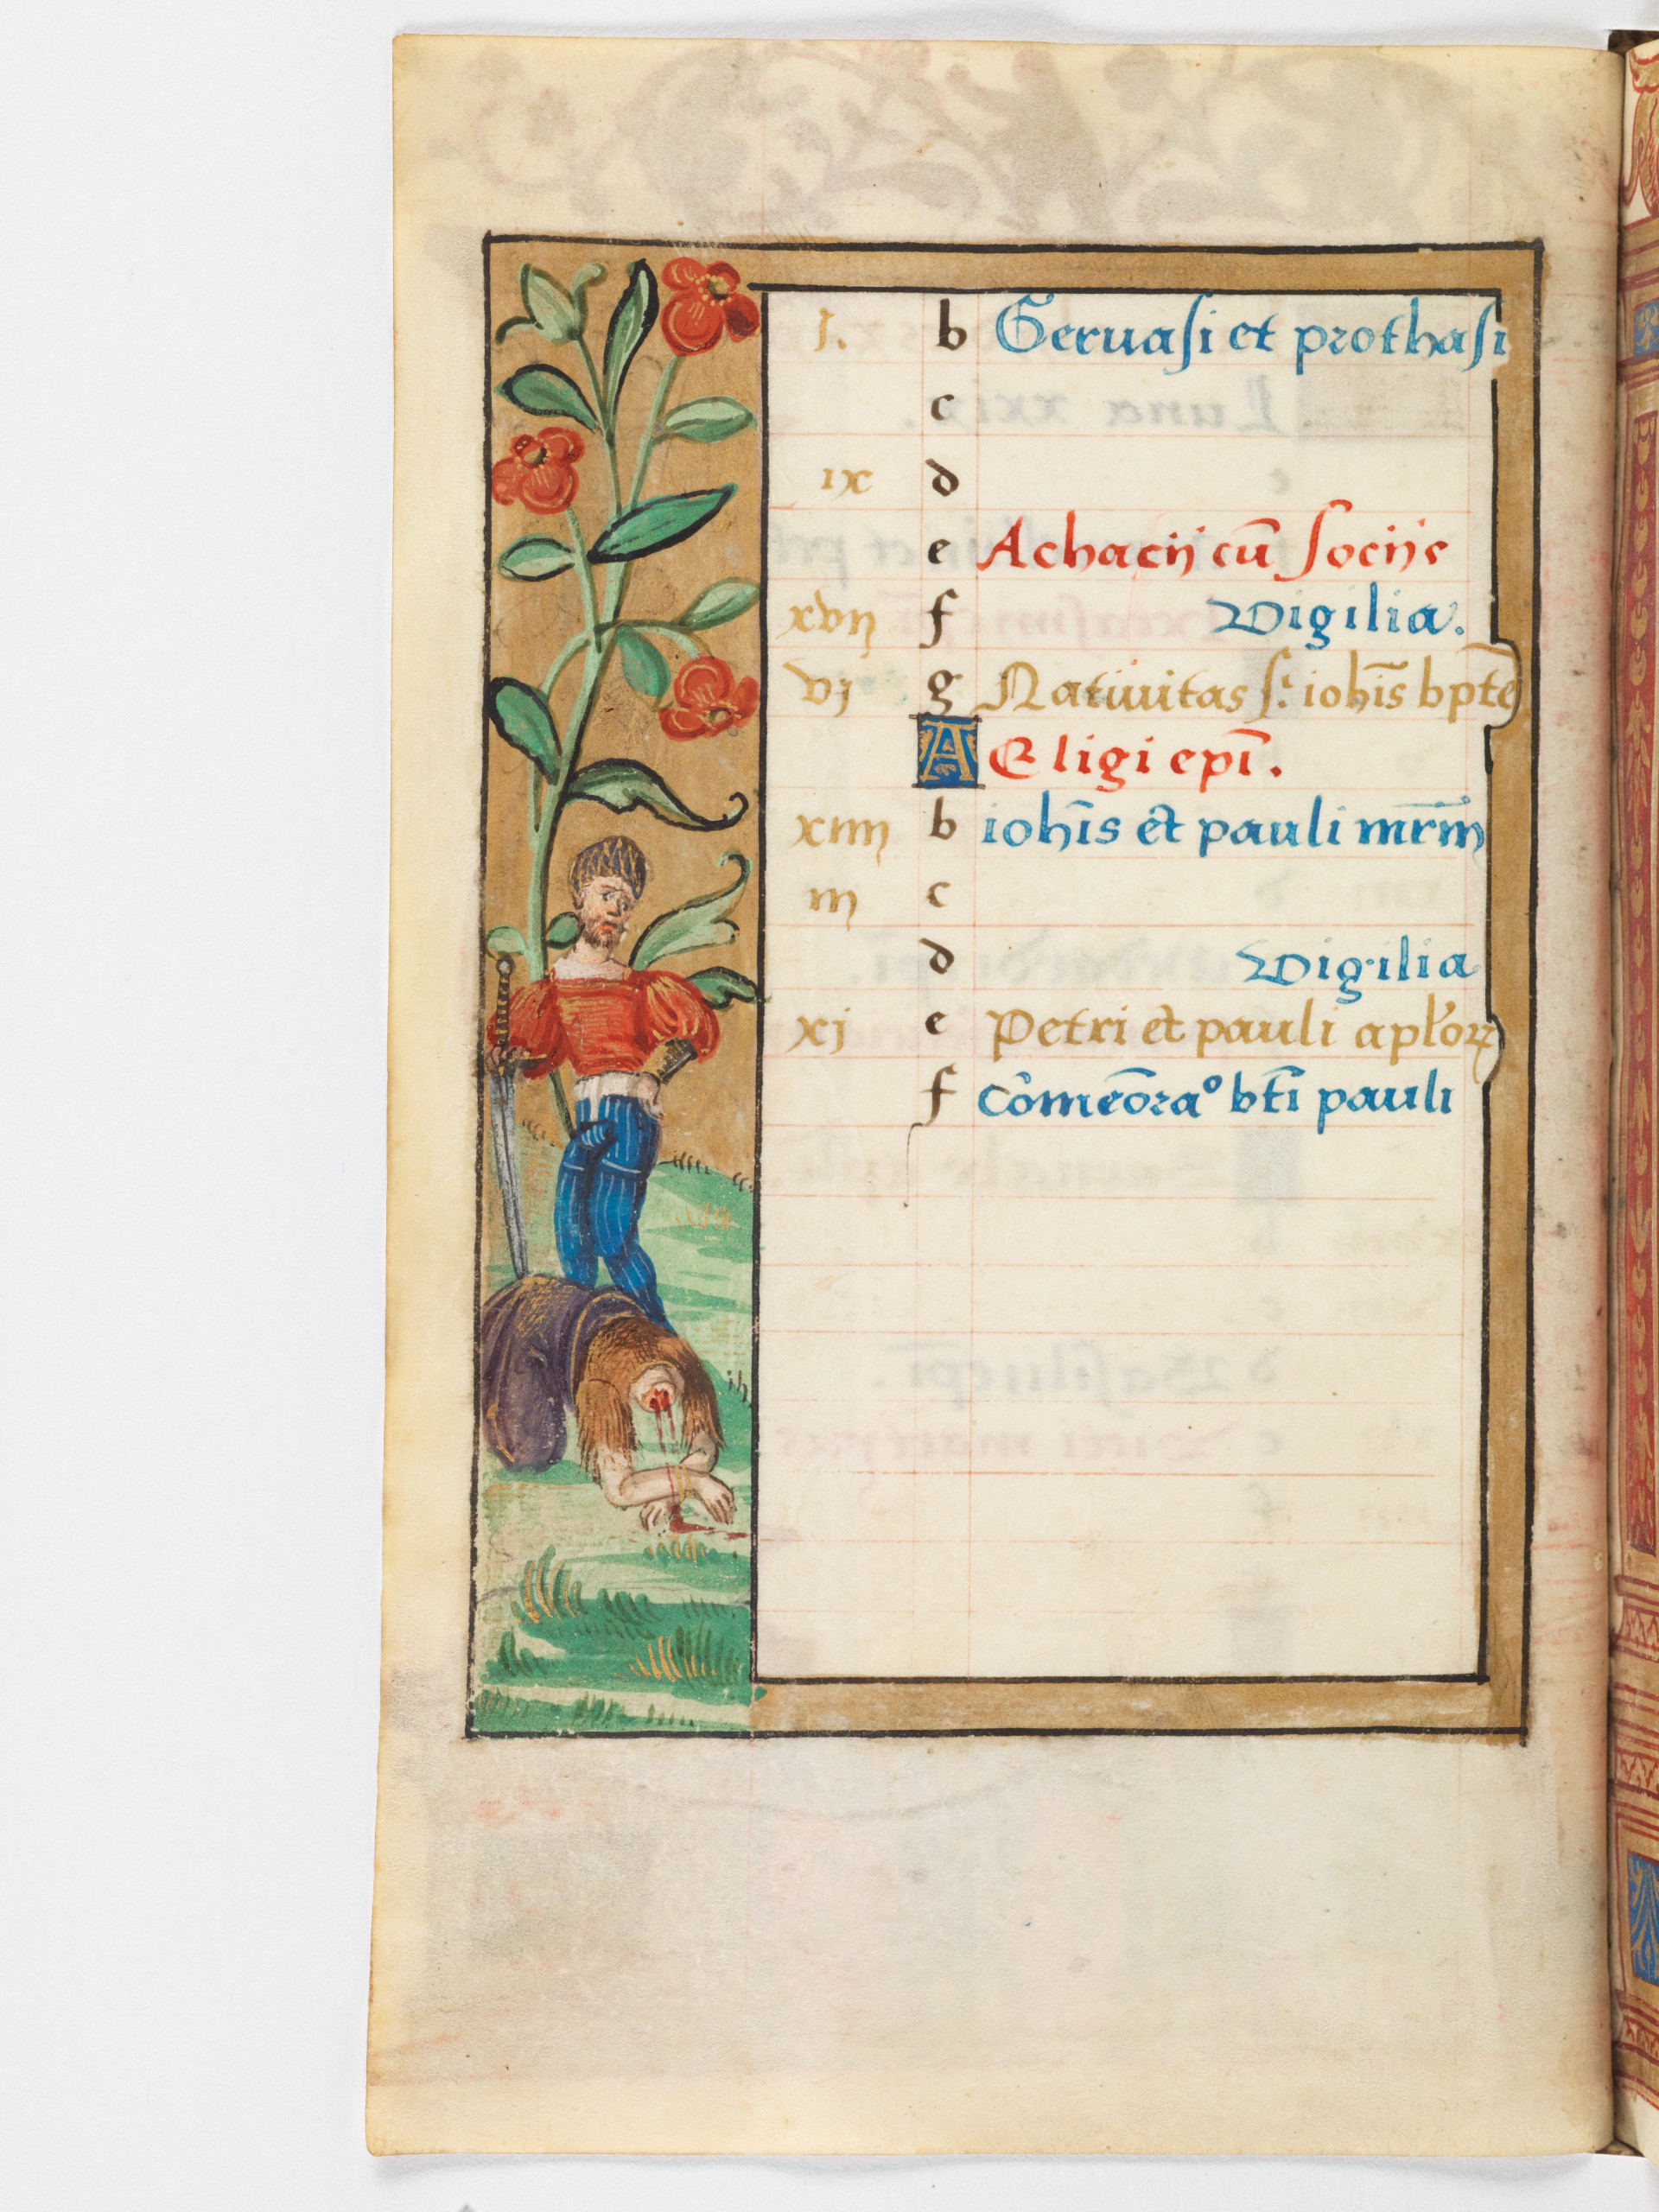 j. b Geruasi et prothasi
c
ix d
e Achacij cū socijs
xvij f Vigilia.
vj g Natiuitas s: iohīs bpte
A Eligi epī.
xiiij b iohīs et pauli mrm̄
iij c
d Vigilia
xj e Petri et pauli aplor̄
f Cōmeōraº bti pauli